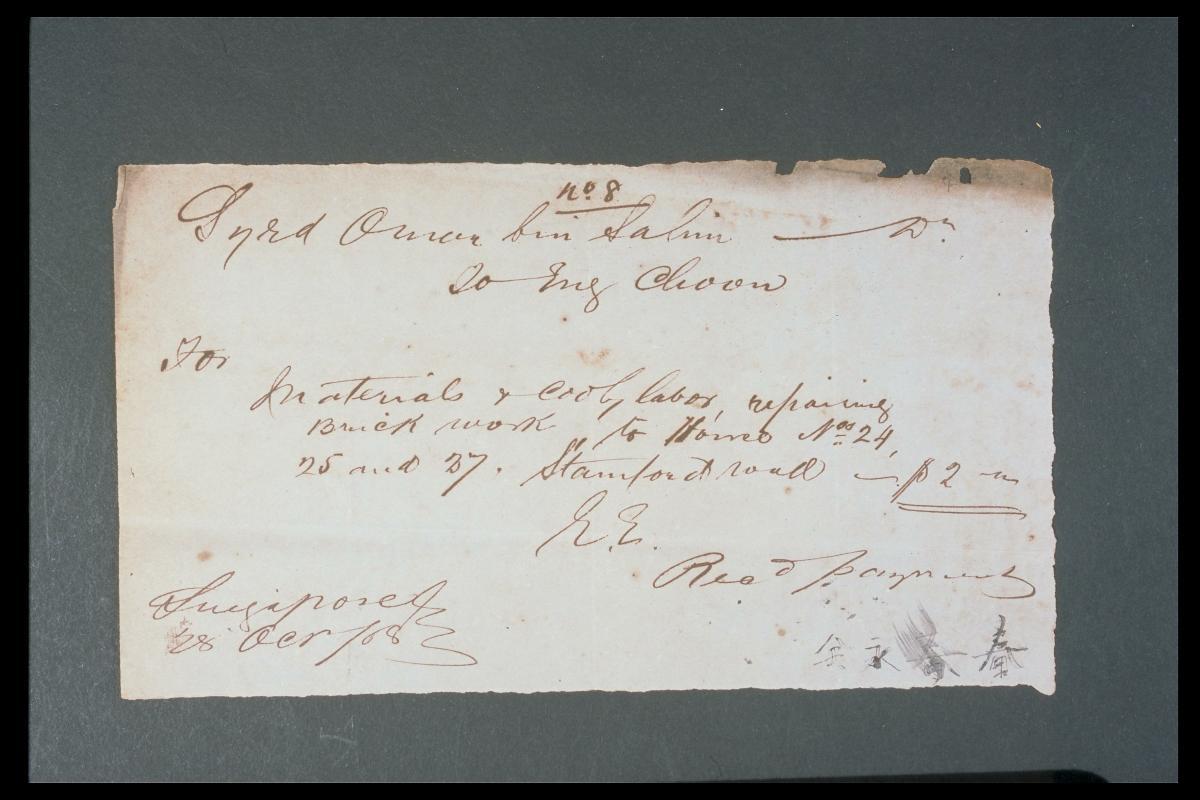 No. 8
Syed Omar bin Salim — Dr
To Eng Choon
For
Materials & cooly labor, repairing
Brick work to House Nos 24,
25 and 27. Stamford road — $2 —
E.E.
Recd payment
Singapore
28 Oct /68
永春